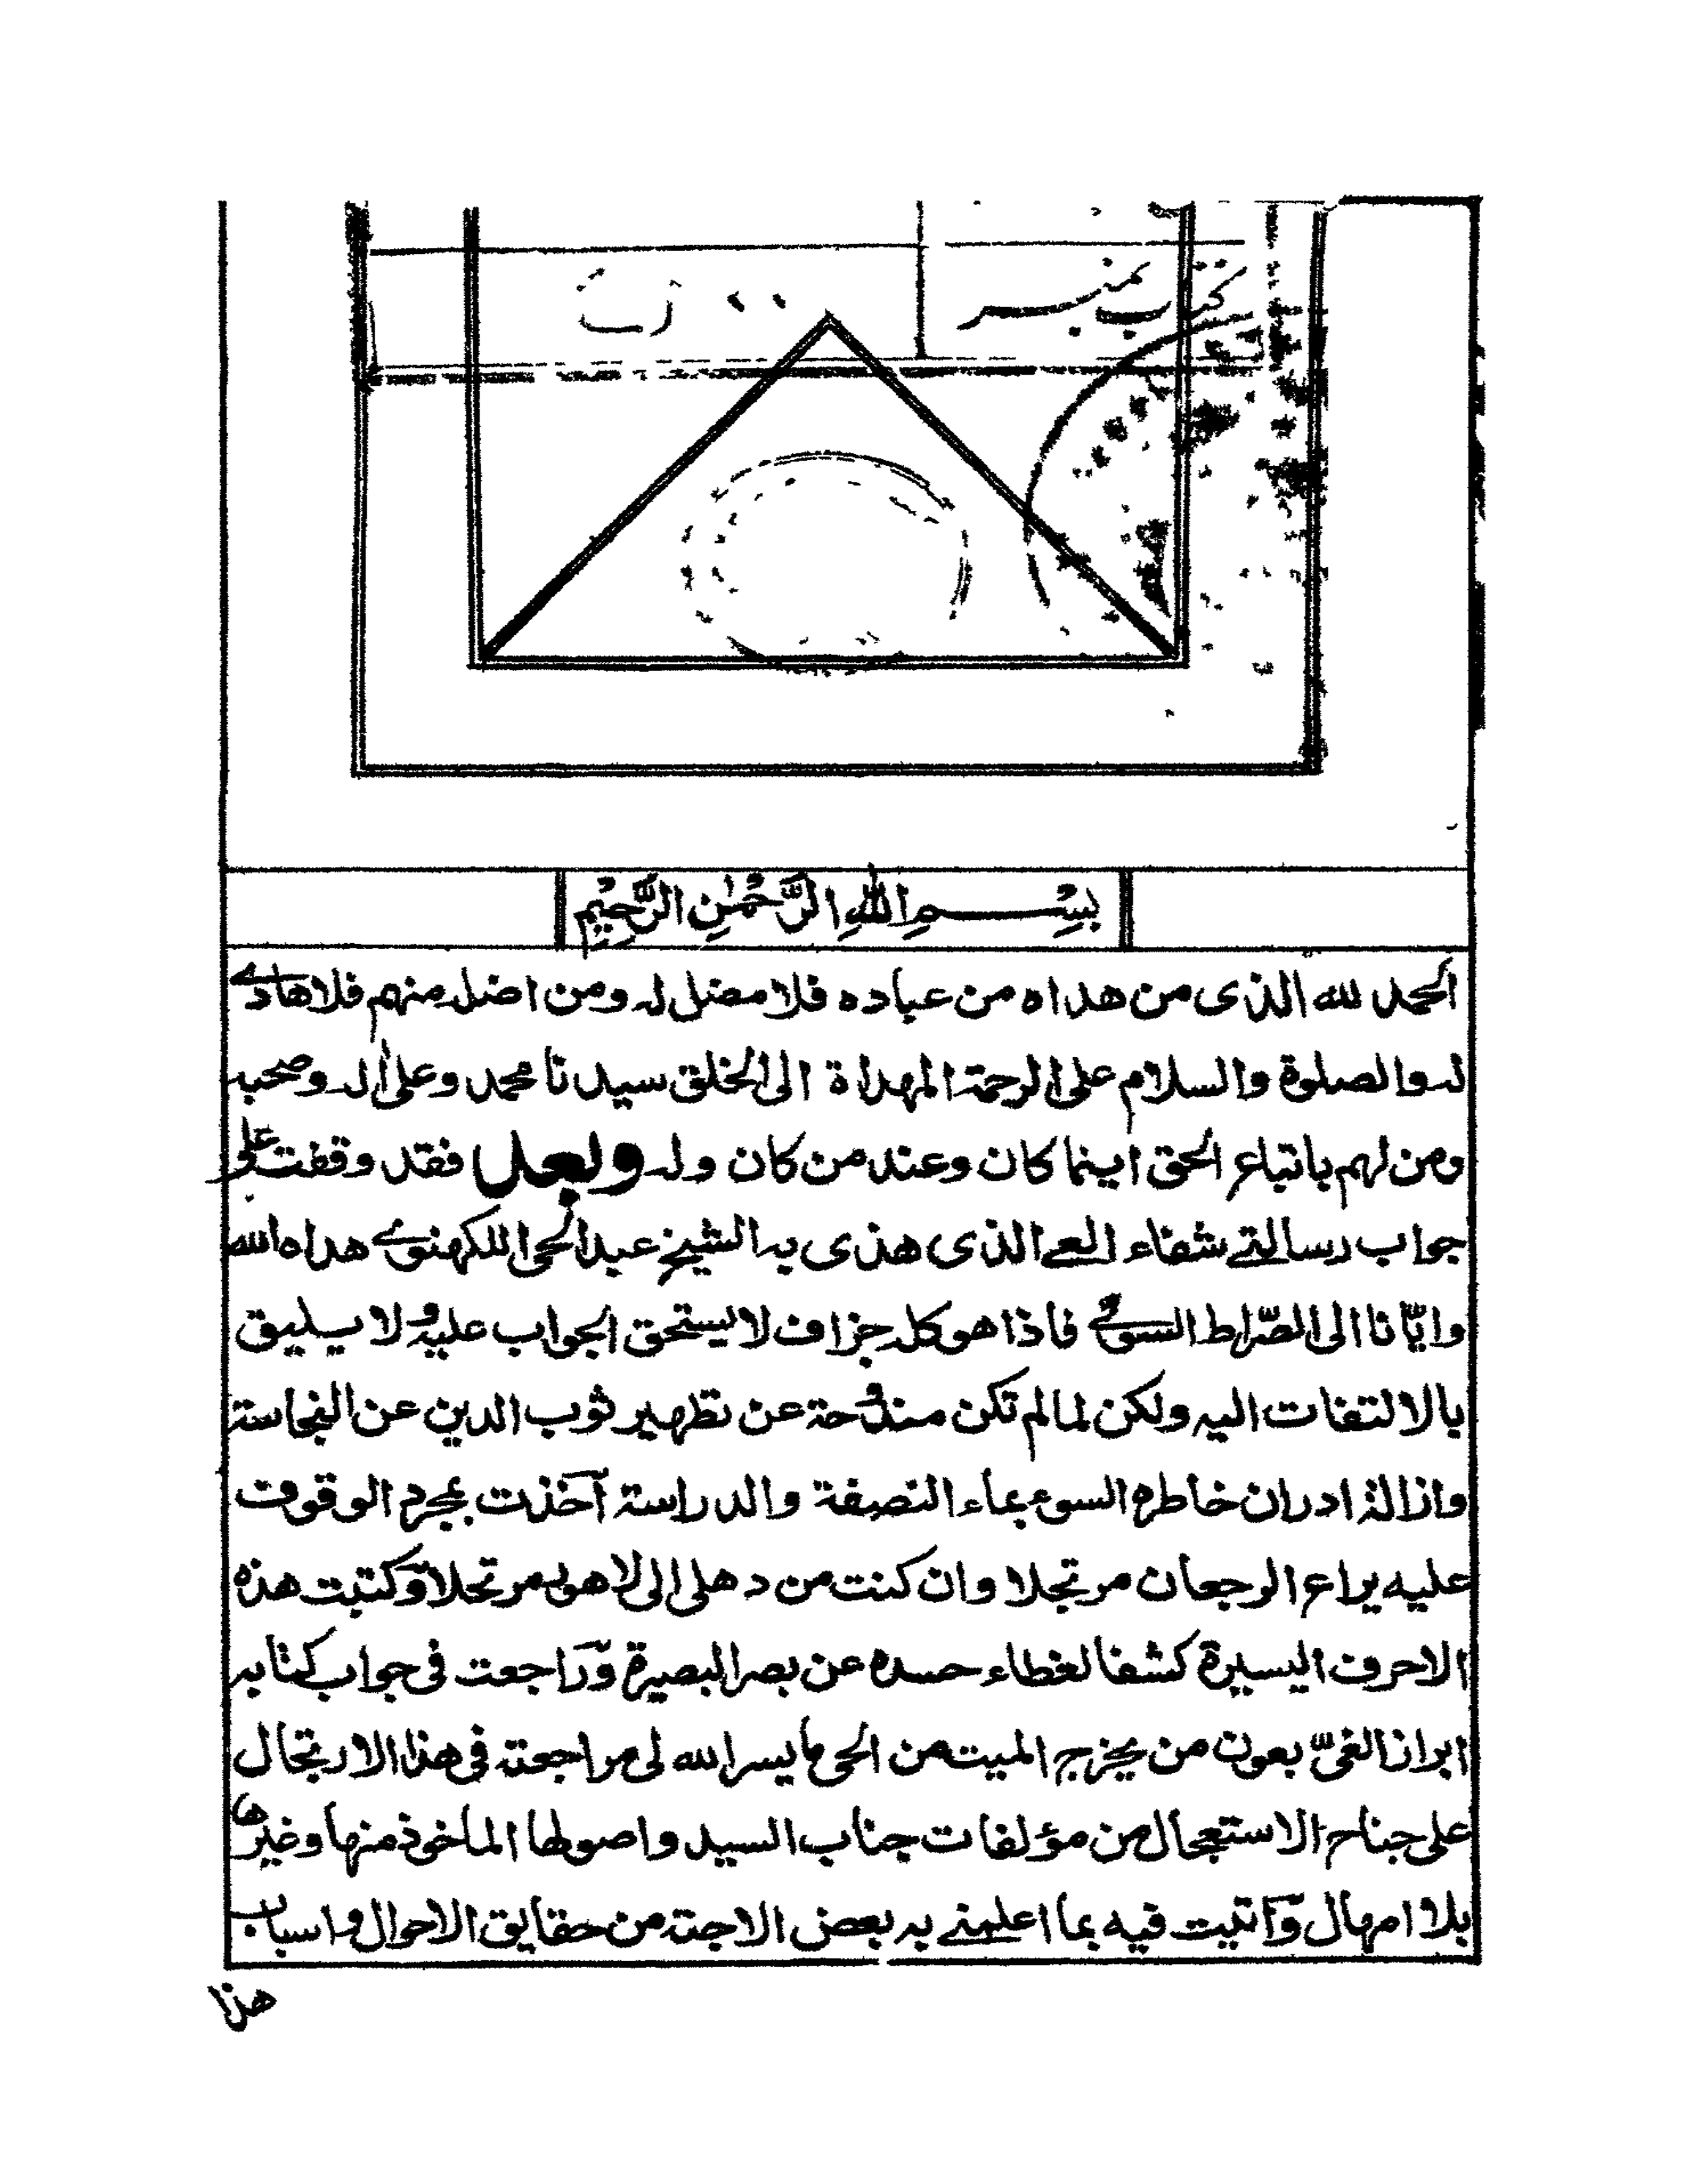 كتب نمبر
بِسْمِ اللّٰهِ الرَّحْمٰنِ الرَّحِيْمِ
الحمد لله الذى من هداه من عباده فلا مضل له ومن اضل منهم فلا هادے
له والصلوة والسلام على الرحمة المهداة الى الخلق سيدنا محمد وعلى اٰله وصحبه
ومن لهم باتباع الحق اينما كان وعند من كان وله وبعد فقد وقفت على
جواب رسالتے شفاء العے الذى هذى به الشيخ عبد الحى اللكهنوے هداه الله
وايّانا الى الصّراط السوے فاذا هو كله جزاف لا يستحق الجواب عليه ولا يليق
بالالتفات اليه ولكن لما لم تكن مندوحة عن تطهير ثوب الدين عن النجاسة
وازالة ادران خاطره السوء بماء النصفة والدراسة آخذت بمجرد الوقوف
عليه يراع الرجعان مرتجلا وان كنت من دهلى الى لاهور مرتحلا وكتبت هذه
الاحرف اليسيرة كشفا لغطاء حسده عن بصر البصيرة وراجعت فى جواب كتابه
ابراز الغىّ بعون من يخرج الميت من الحى ما يسر الله لى مراجعته فى هذا الارتجال
على جناح الاستعجال من مؤلفات جناب السيد واصولها الماخوذ منها وغيرها
بلا امهال وآتيت فيه بما اعلمنے به بعض الاجنة من حقايق الاحوال واسباب
هذا